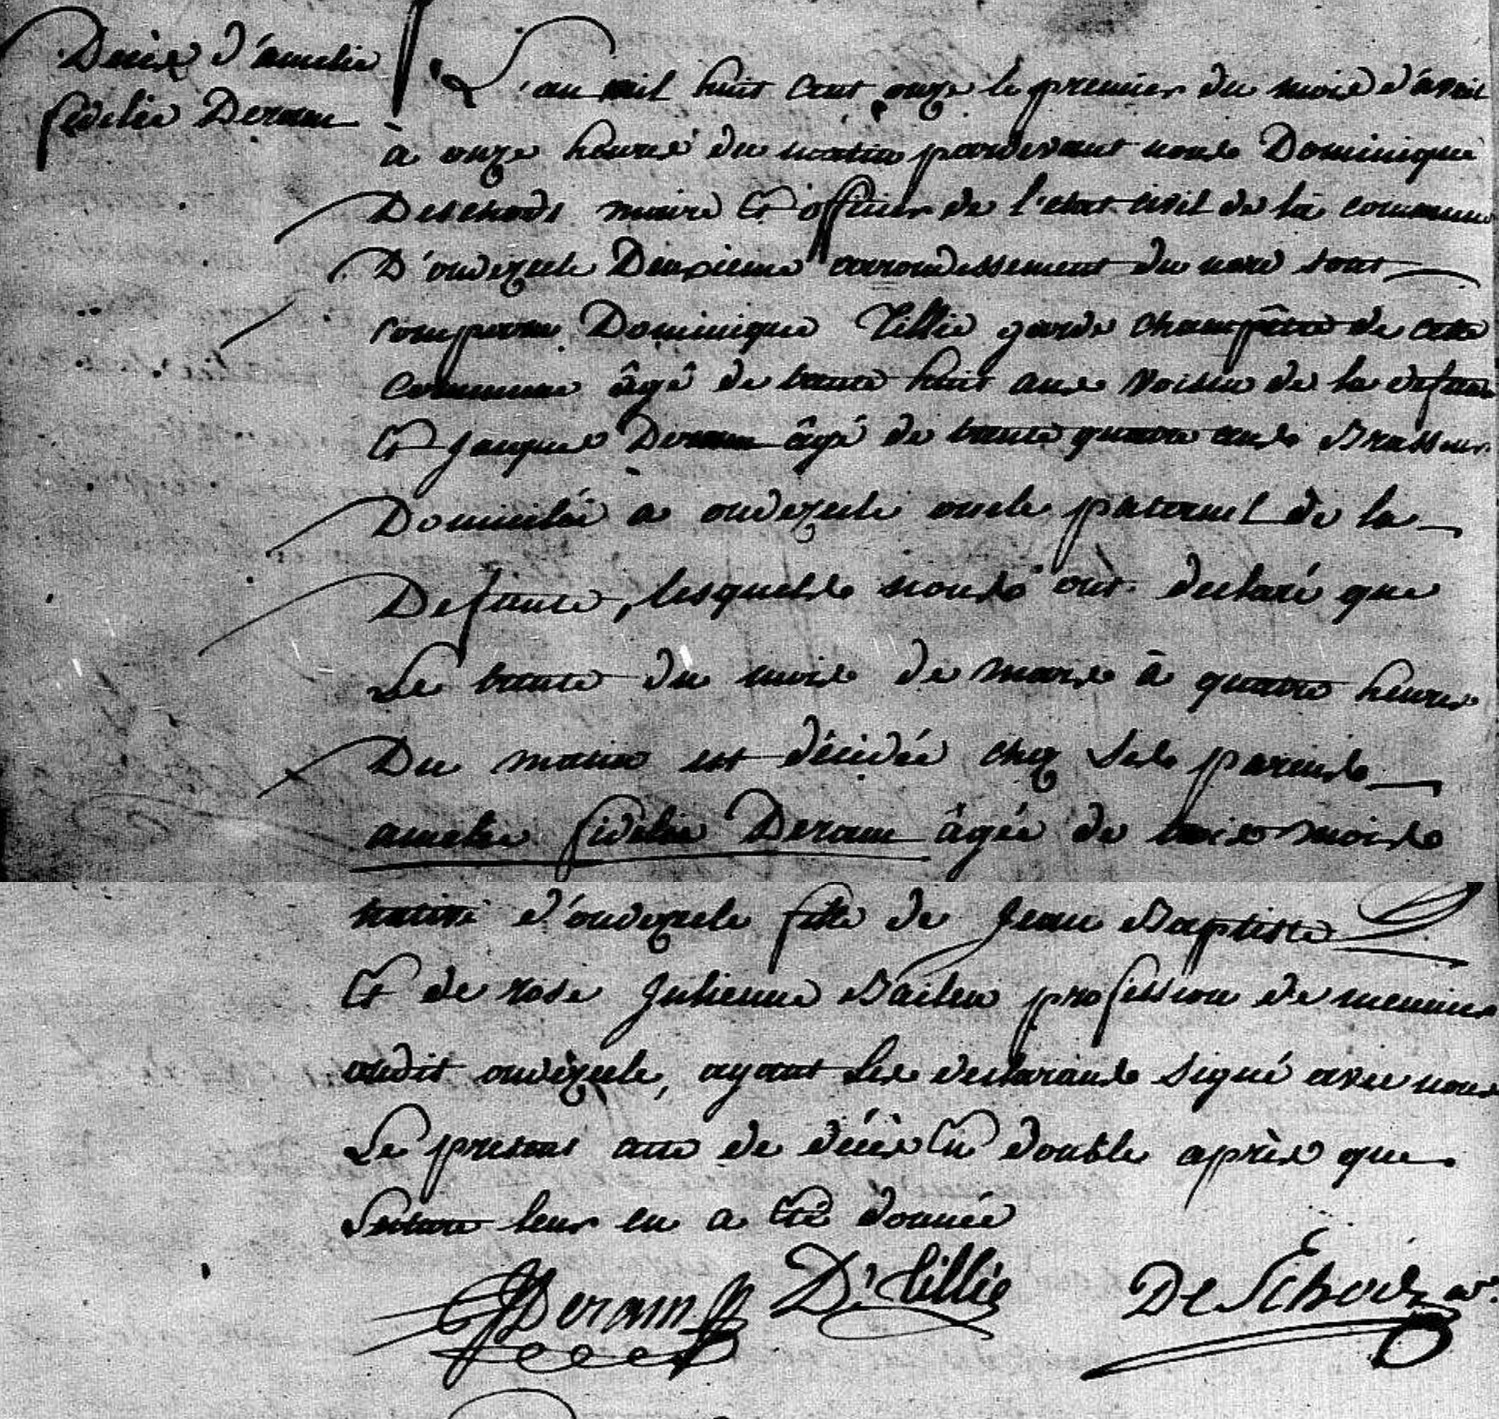 Décès d'amelie
fidelie Deram
L'an mil huit cent onze le premier du mois d'avril
à onze heures du matin pardevant nous Dominique
Deschodt maire et officier de l'etat civil de la commune
D'oudezeele Deuxieme arrondissement du nord sont
comparus Dominique Tillie garde champêtre de cette
commune âgé de trente huit ans voisin de la defunte
et Jacques Deram âgé de trente quatre ans Brasseur
Domicilié a oudezeele oncle paternel de la
Defunte, lesquels nous ont declaré que
Le trente du mois de mars à quatre heures
Du matin est décédée chez ses parents
amelie fidelie Deram âgée de trois mois
native d'oudezeele fille de Jean Baptiste
et de rose Julienne Bailleu profession de meunier
audit oudezeele, ayant les declarants signé avec nous
Le present acte de décès en double après que
Lecture leur en a été donnée
J Deram D. Tillie DeSchodt